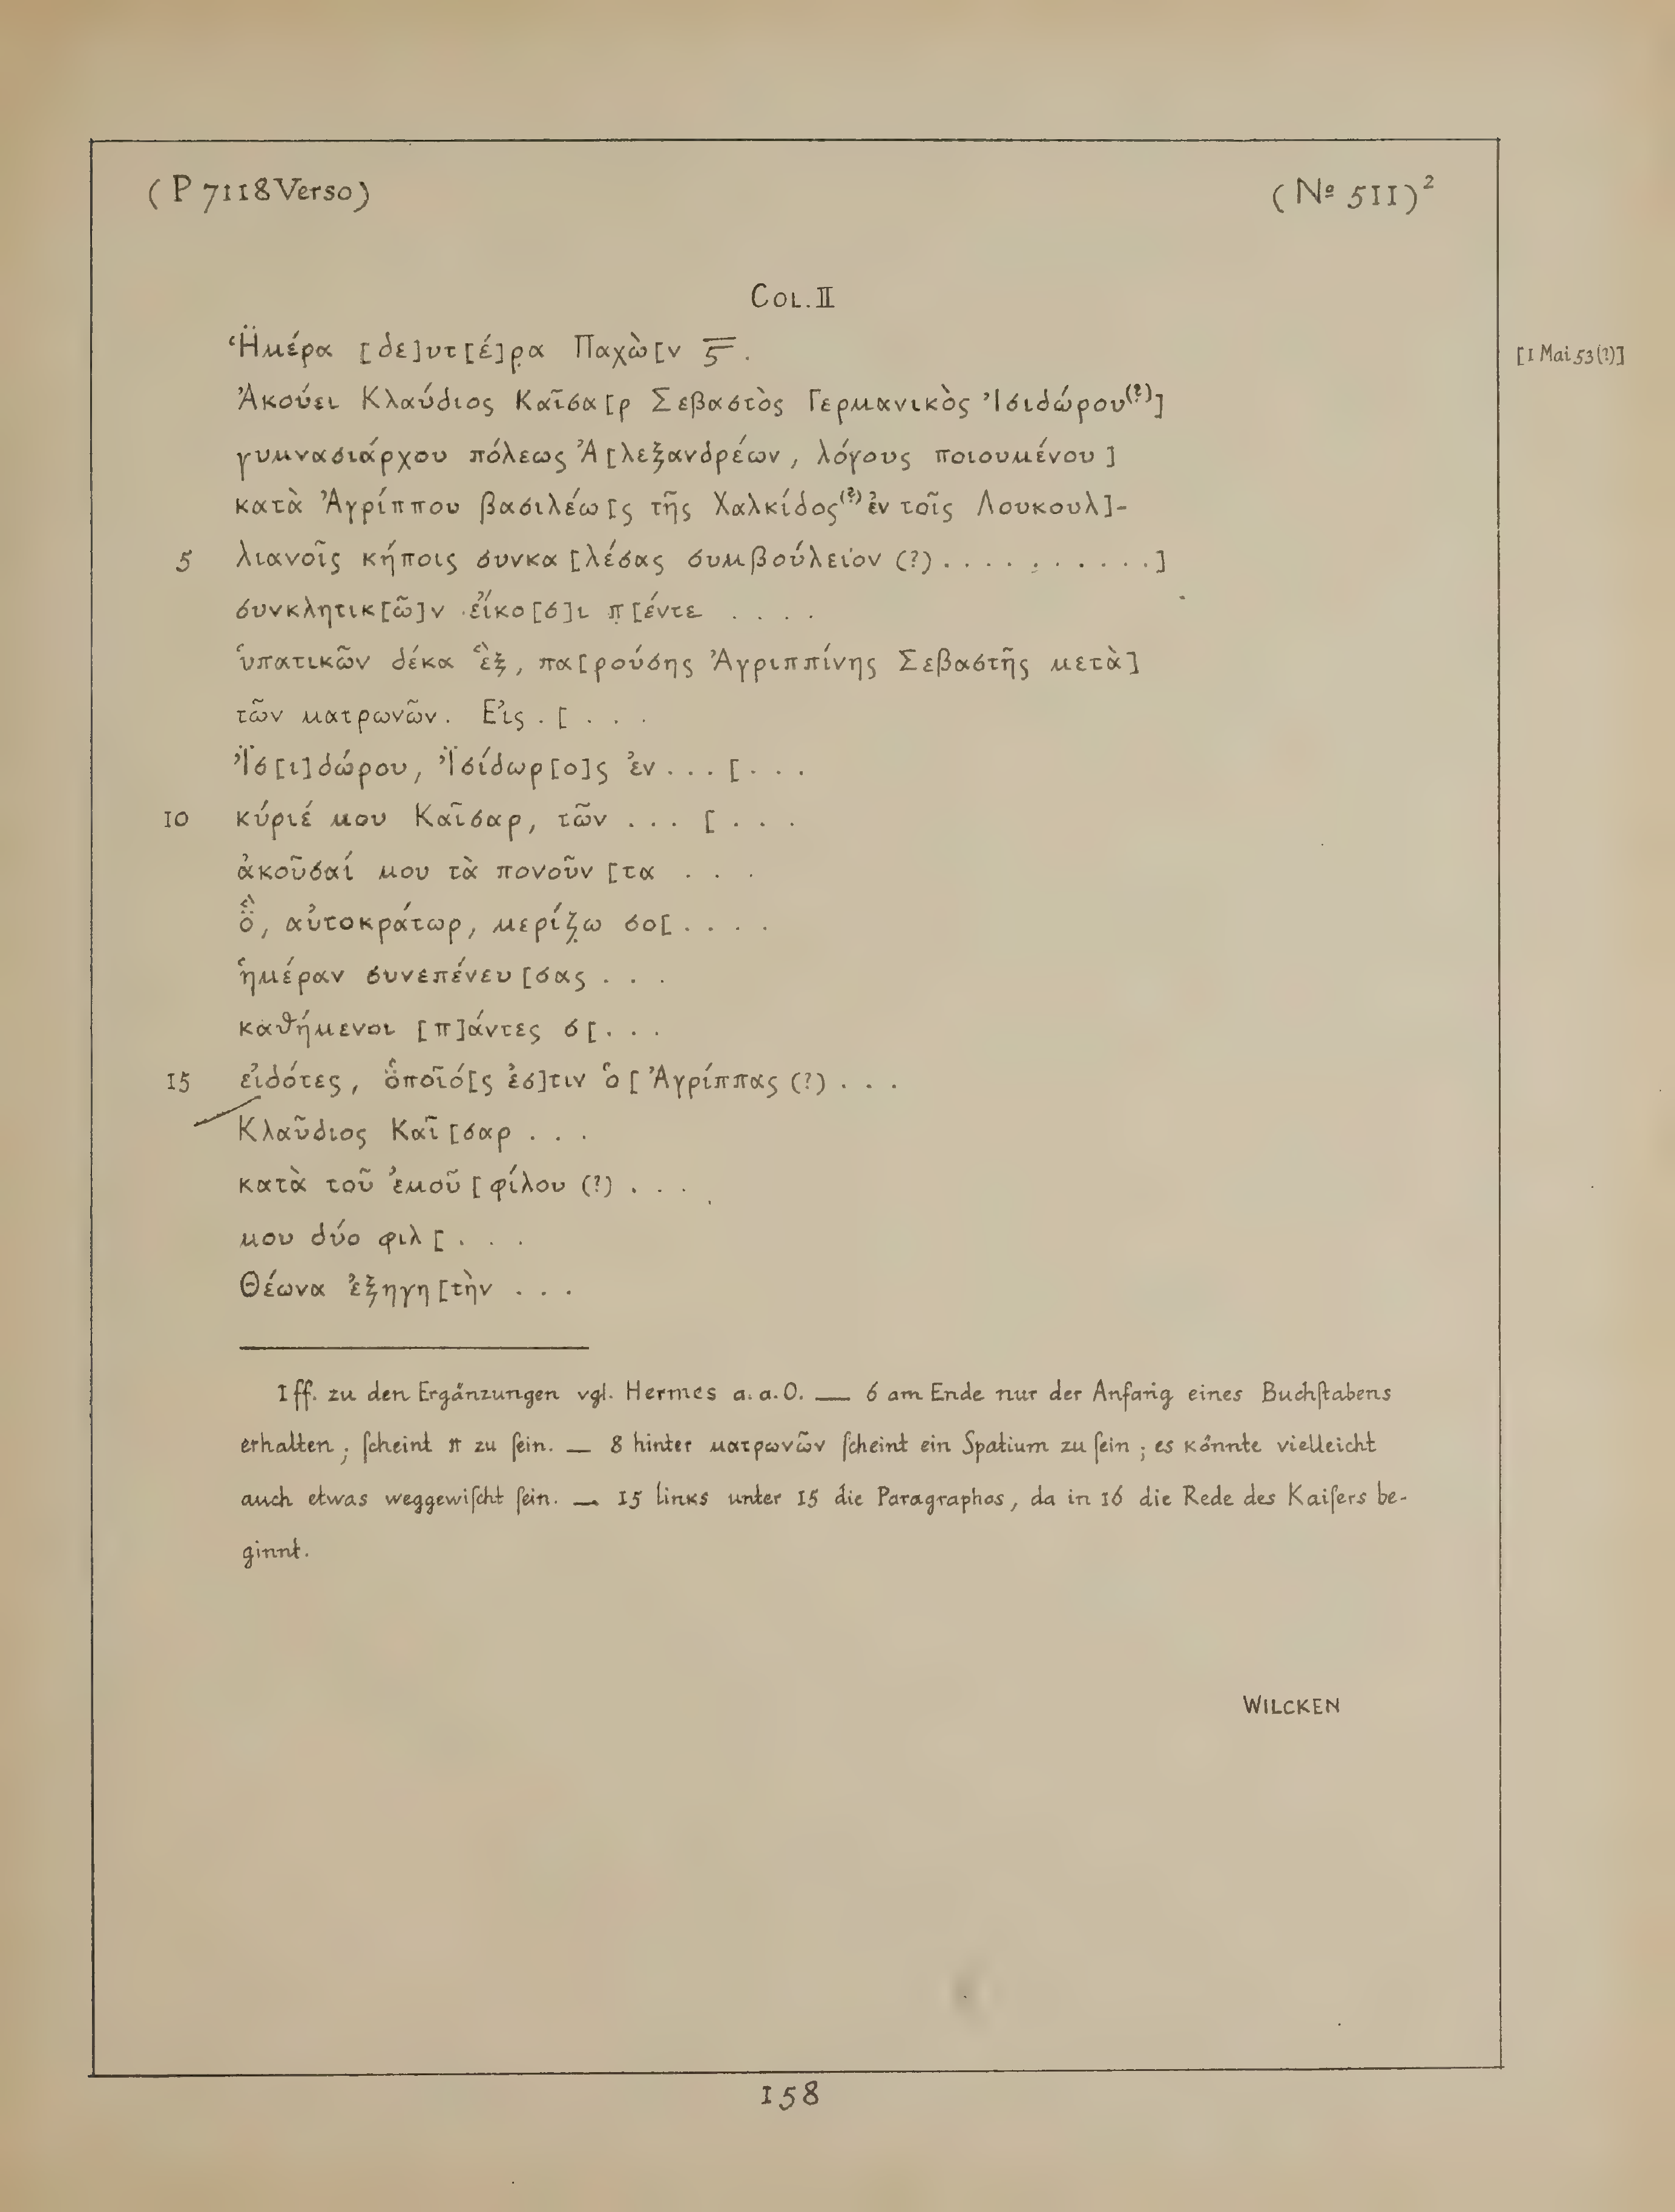 (P 7118 Verso)
(№ 511)²
COL. II
Ἡ̈μέρα [δε]υτ[έ]ρ̣α Παχὼ[ν ϛ̅.
[1 Mai 53(?)]
Ἀκούει Κλαύδιος Καῖσα[ρ Σεβαστὸς Γερμανικὸς Ἰσιδώρου(?)]
γυμνασιάρχου πόλεως Ἀ[λεξανδρέων, λόγους ποιουμένου]
κατὰ Ἀγρίππου βασιλέω[ς τῆς Χαλκίδος(?) ἐν τοῖς Λουκουλ]-
5 λιανοῖς κήποις συνκα[λέσας συμβούλειον (?) . . . . . . . . . .]
συνκλητικ[ῶ]ν εἴκο[σ]ι π̣[έντε . . . .
ὑπατικῶν δέκα ἓξ, πα[ρούσης Ἀγριππίνης Σεβαστῆς μετὰ]
τῶν ματρωνῶν. Εἰς . [ . . .
Ἰ̈σ[ι]δώρου, Ἰ̈σίδωρ[ο]ς ἐν . . . [. . .
10 κύριέ μου Καῖσαρ, τῶν . . . [ . . .
ἀκοῦσαί μου τὰ πονοῦν[τα . . .
ὃ̈, αὐτοκράτωρ, μερίζ̣ω σο[. . . .
ἡμέραν συνεπένευ[σας . . .
καθήμενοι [π]άντες σ[. . .
15 εἰδότες, ὁ̈ποῖό[ς ἐσ]τιν ὁ [Ἀγρίππας (?) . . .
Κλαῦδιος Καῖ[σαρ . . .
κατὰ τοῦ ἐμοῦ [φίλου (?) . . .
μου δύο φιλ[. . .
Θέωνα ἐξηγη[τὴν . . .
1 ff. zu den Ergänzungen vgl. Hermes a. a. O. — 6 am Ende nur der Anfang eines Buchſtabens
erhalten; ſcheint π zu ſein. — 8 hinter ματρωνῶν ſcheint ein Spatium zu ſein; es könnte vielleicht
auch etwas weggewiſcht ſein. — 15 links unter 15 die Paragraphos, da in 16 die Rede des Kaiſers be-
ginnt.
WILCKEN
158